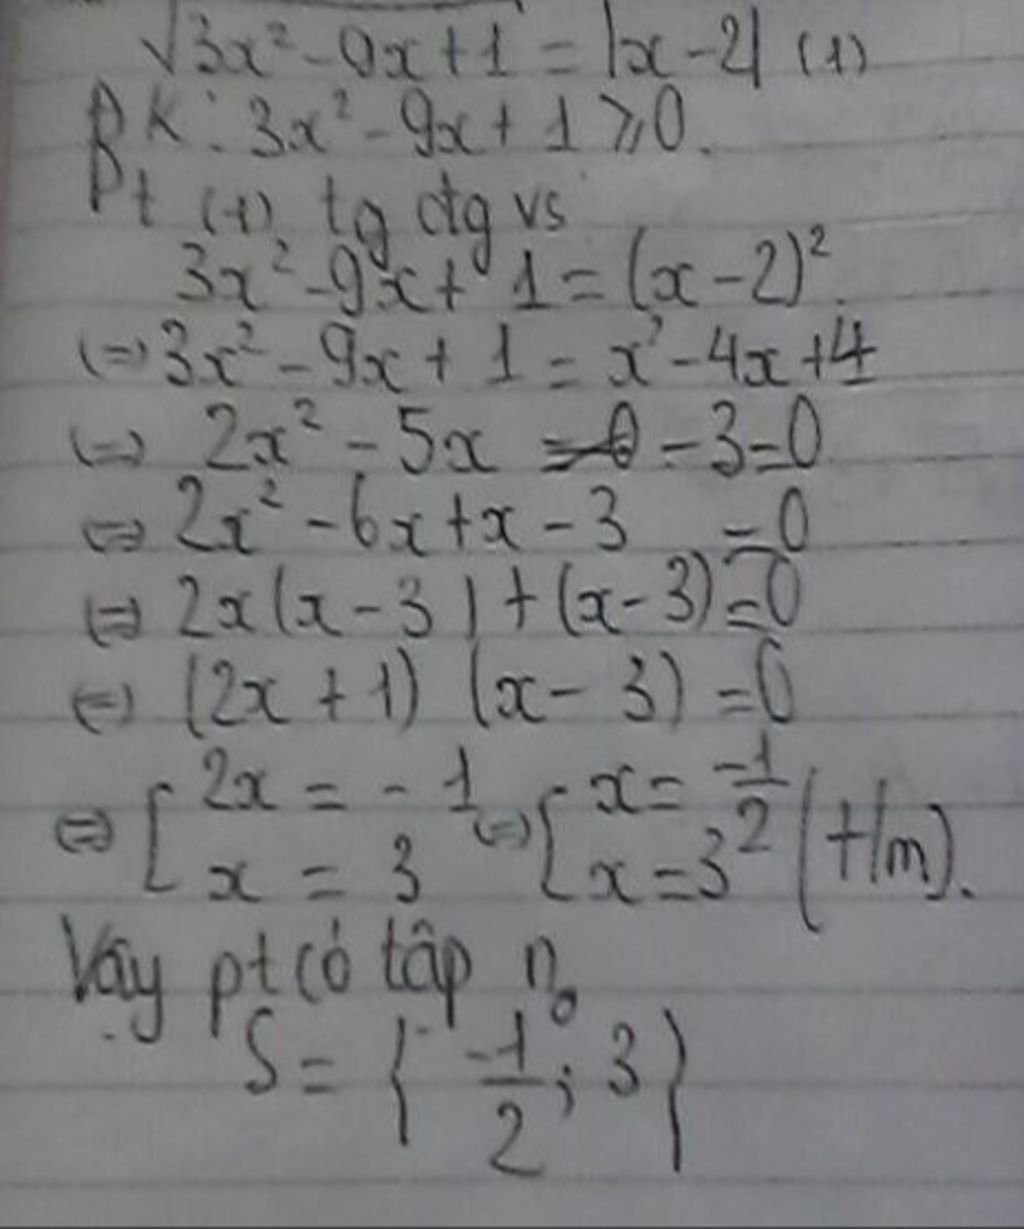 √3x² - 9x + 1 = |x - 2| (1)
ĐK: 3x² - 9x + 1 ≥ 0.
Pt (1) tg đtg vs
3x² - 9x + 1 = (x - 2)².
(=) 3x² - 9x + 1 = x² - 4x + 4
(=) 2x² - 5x - 3 = 0
(=) 2x² - 6x + x - 3 = 0
(=) 2x(x - 3) + (x - 3) = 0
(=) (2x + 1) (x - 3) = 0
(=) [ 2x = -1 (=) [ x = -1/2
x = 3 x = 3 (t/m).
Vậy pt có tập n₀
S = { -1/2 ; 3 }